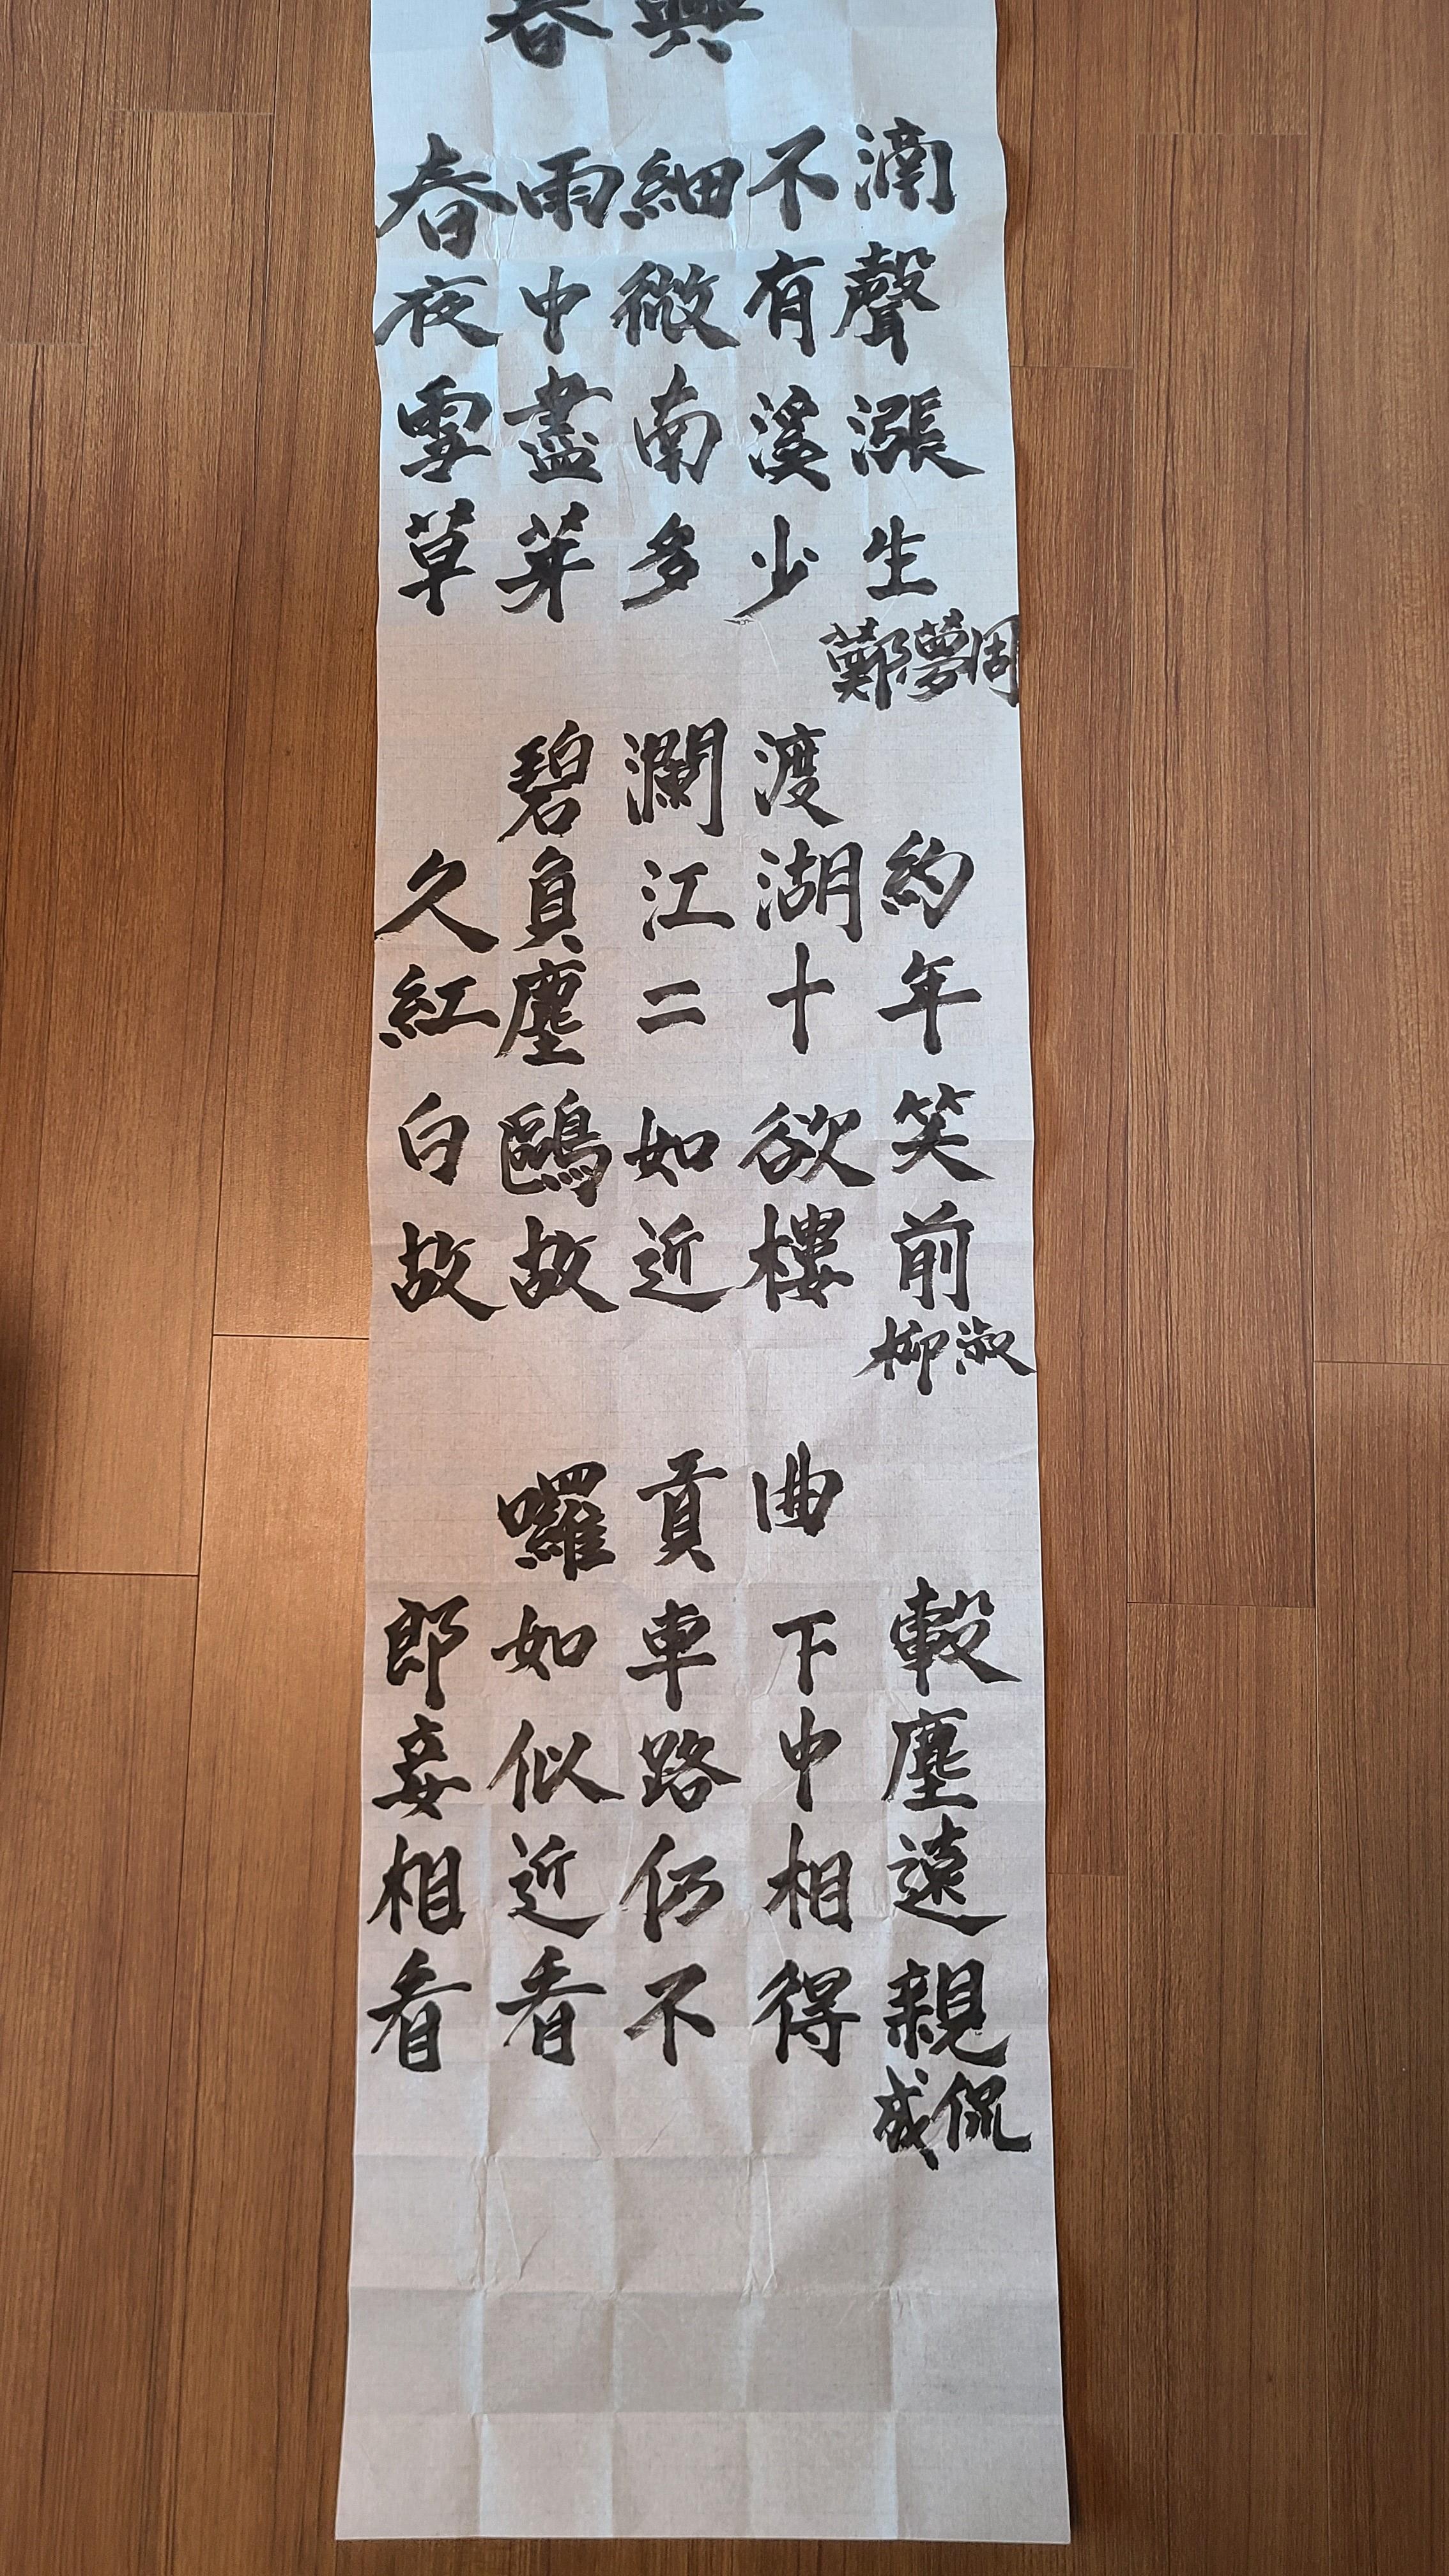 春興
春雨細不滴
夜中微有聲
雪盡南溪漲
草芽多少生
鄭夢周
碧瀾渡
久負江湖約
紅塵二十年
白鷗如欲笑
故故近樓前
柳淑
囉貢曲
郎如車下轂
妾似路中塵
相近仍相遠
看看不得親
成侃